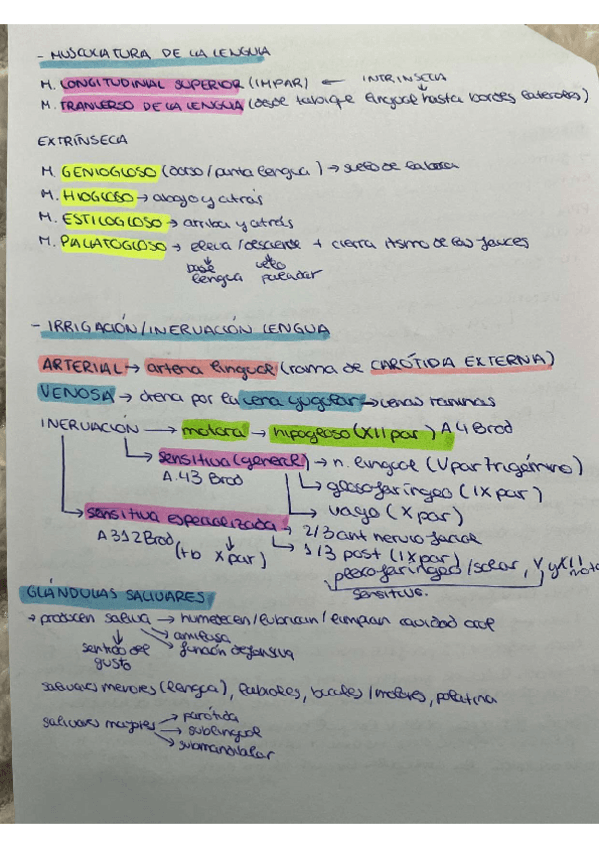 - MUSCULATURA DE LA LENGUA
M. LONGITUDINAL SUPERIOR (IMPAR) ← INTRINSECA
M. TRANVERSO DE LA LENGUA (desde tabique lingual hasta bordes laterales)
EXTRÍNSECA
M. GENIOGLOSO (dorso/punta lengua) → suelo de la boca
M. HIOGLOSO → abajo y atrás
M. ESTILOGLOSO → arriba y atrás
M. PALATOGLOSO → eleva/desciende + cierra itsmo de las fauces
base velo
lengua paladar
- IRRIGACIÓN/INERVACIÓN LENGUA
ARTERIAL → arteria lingual (rama de CARÓTIDA EXTERNA)
VENOSA → drena por la vena yugular → venas raninas
INERVACIÓN → motora → hipogloso (XII par) A4 Brod
sensitiva (general) → n. lingual (V par trigémino)
A.43 Brod → glosofaríngeo (IX par)
→ vago (X par)
sensitiva especializada → 2/3 ant nervio facial
A312 Brod (tb X par) → 1/3 post (IX par)
/ , V y XII
sensitivos.
GLÁNDULAS SALIVARES
→ producen saliva → humedecen/lubrican/limpian cavidad oral
amilasa
sentido del función defensiva
gusto
salivares menores (lengua), labiales, bucales/molares, palatina
salivares mayores → parótida
→ sublingual
→ submandibular